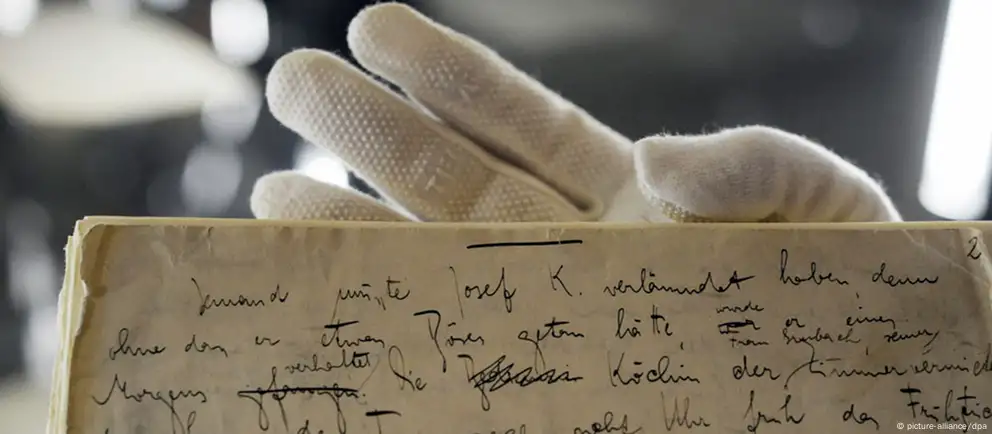 2
Jemand mußte Josef K. verläumdet haben, denn
ohne daß er etwas Böses getan hätte, war wurde er eines
Frau Grubach, seiner
verhaftet
Morgens gefangen. Die Köchin der Zimmervermiete
acht Uhr früh das Frühstüc
© picture-alliance/dpa